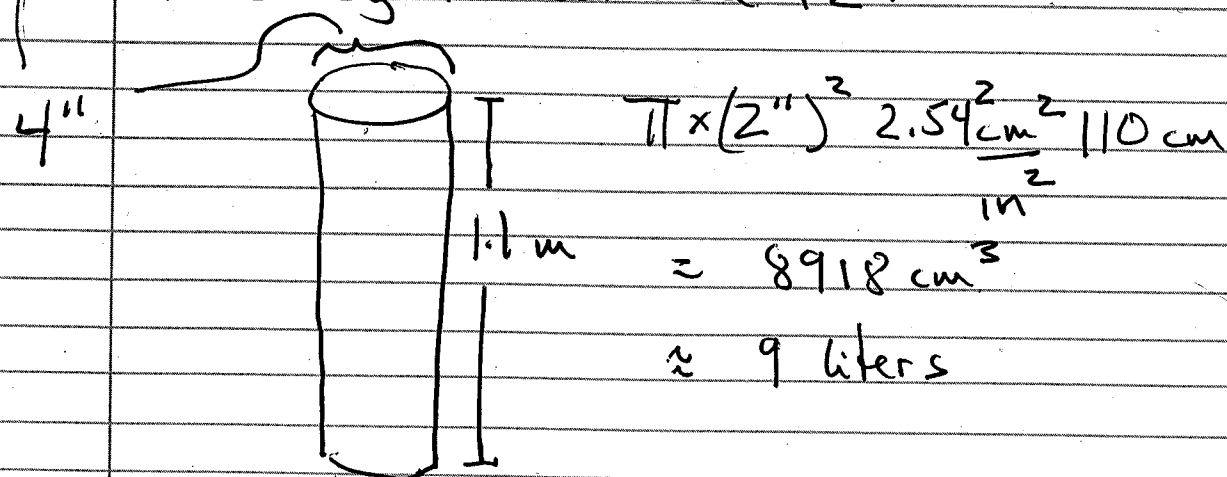 4"
π×(2")² 2.54² cm²/in² 110 cm
1.1 m
= 8918 cm³
≈ 9 liters